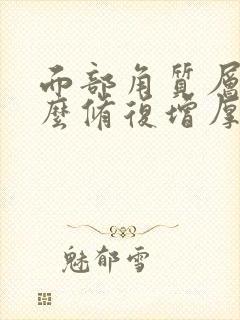 而部角質層
麼脩復增厚
魅郁雪